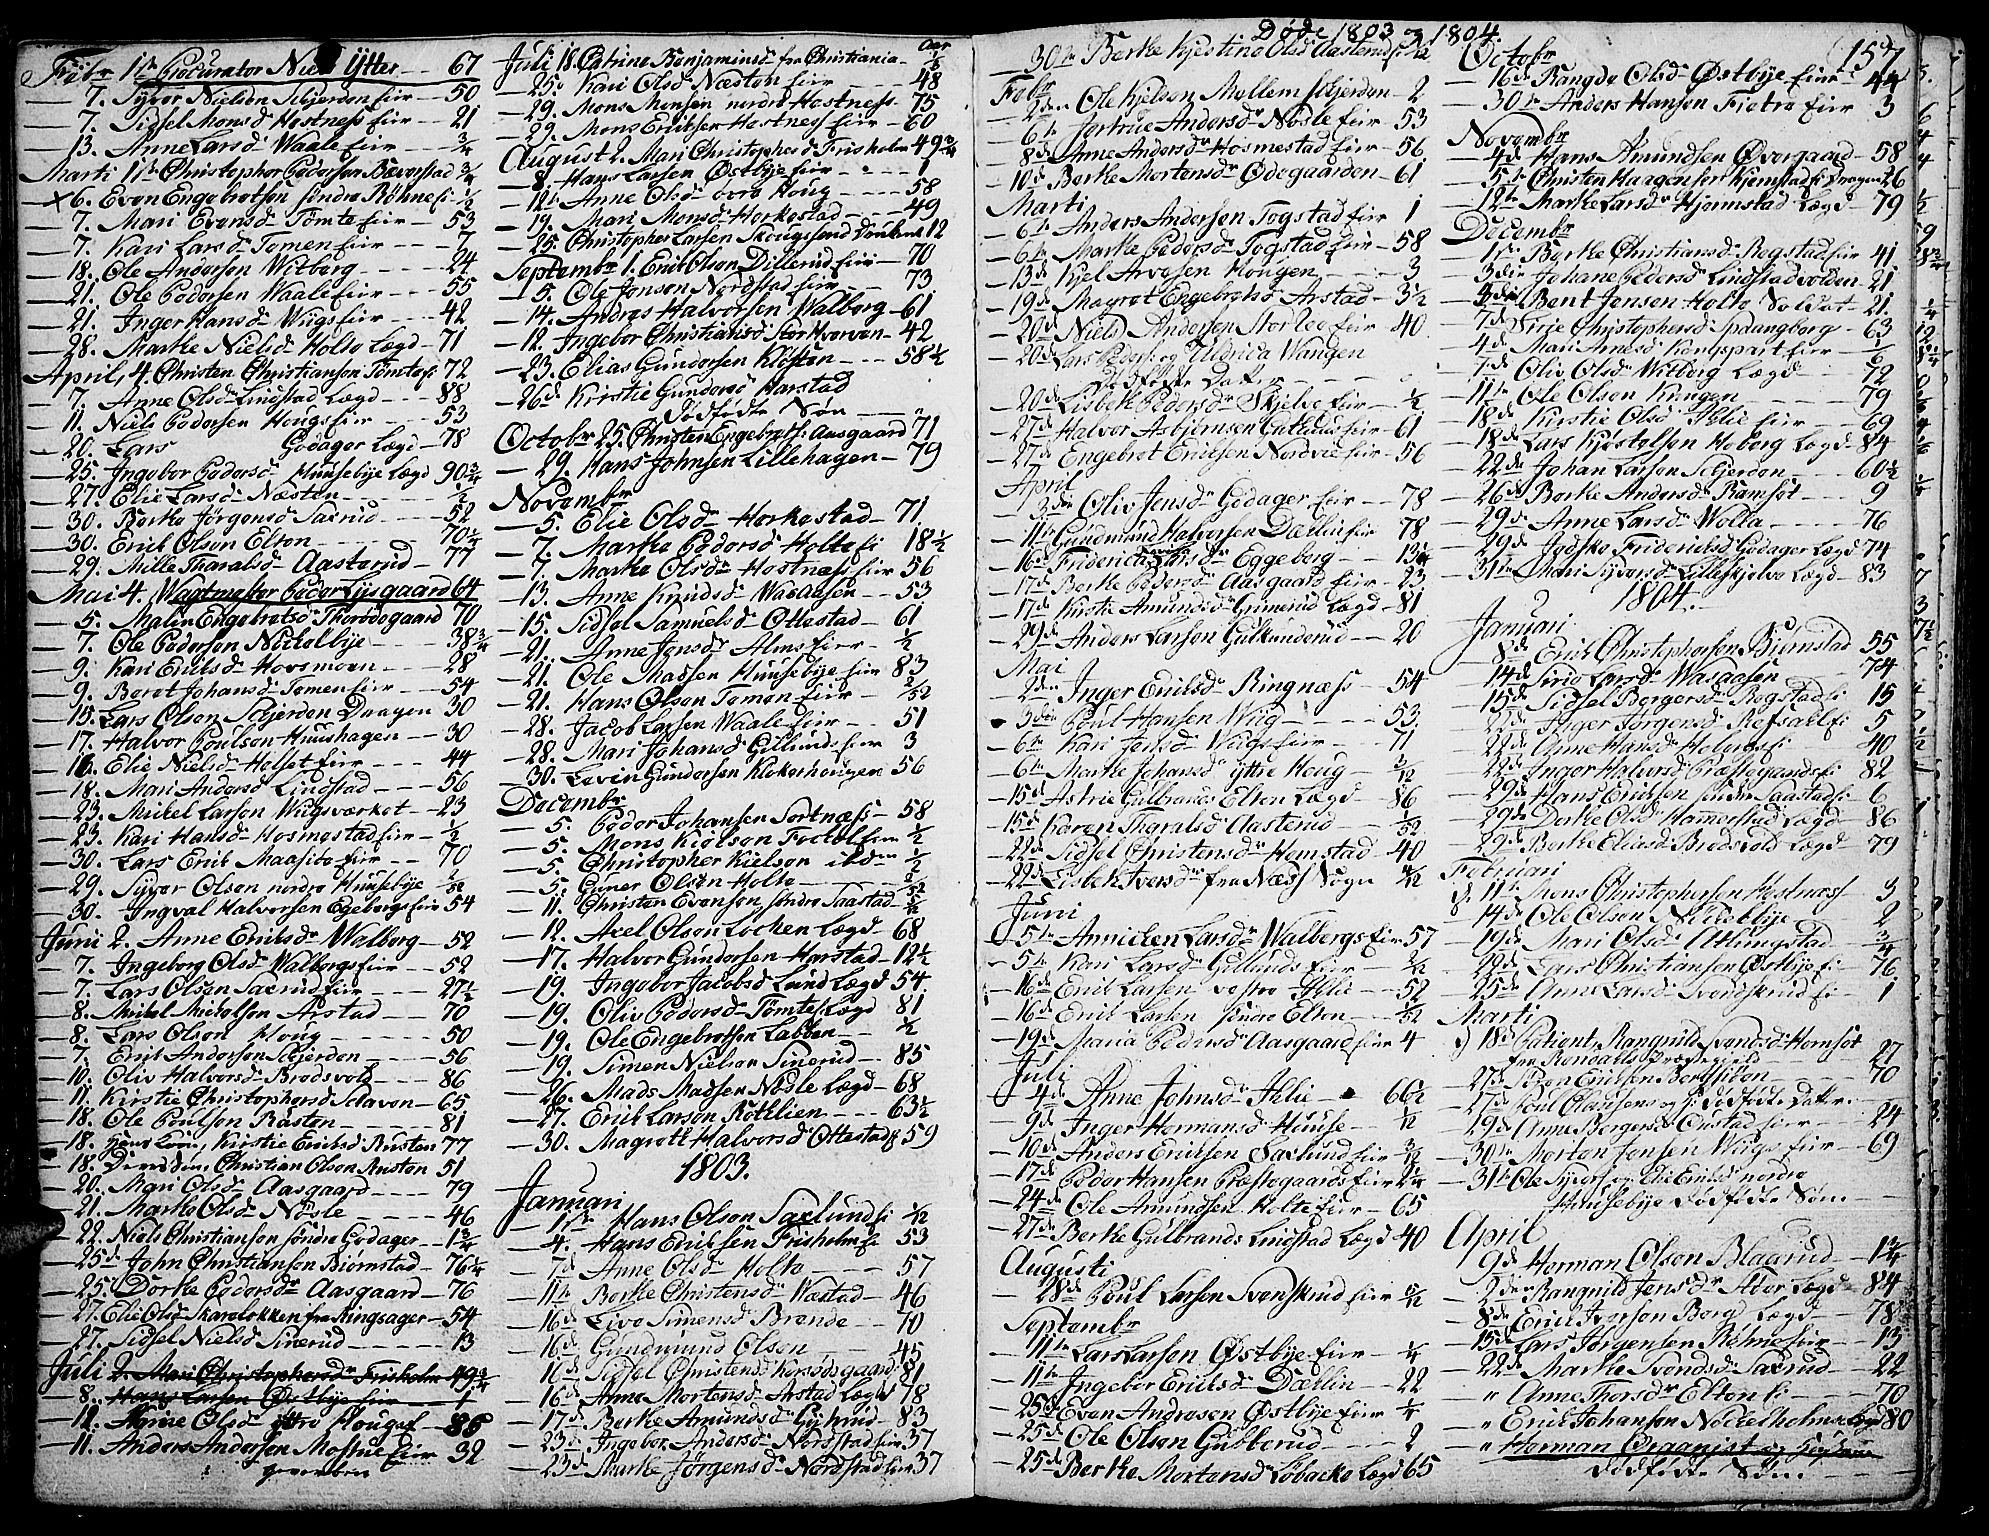 Døde 1803 og 1804.
157
Febr 1ste Procurator Niels Ytter -- 67
— 7. Syver Nielsen Stejerden eier — 50
— 7. Sidsel Monsdr Hostness eier — 21
— 13. Anne Larsdr Waale eier — 3/4
Marti 1ste Christopher Pedersen Bæverstad 3/4
6. Even Engebretsen søndre Bøhne ei 1/2
— 7. Mari Evensdr Tømte eier — 53
— 7. Kari Larsdr Tomen eier — 7
— 18. Ole Andersen Witberg — 24
— 21. Ole Pedersen Waale eier — 55
— 21. Inger Hansdr Wiigs eier — 42
— 28. Marthe Nielsdr Holto Lægd — 71
April, 4. Christen Christiansen Tømte ei 72
— 7. Anne Olsdr Lindstad Lægd — 88
— 11. Niels Pedersen Hougs eier — 53
— 20. Lars Godager Lægd — 78
— 25. Ingebor Pedersdr Huusebÿe Lægd 90 3/4
— 27. Elie Larsdr Næsten — 1/2
— 30. Berthe Jørgensdr Saxrud — 52
— 30. Erik Olsen Elton — 70 1/2
— 29. Mille Tharalsdr Aasterud — 77
Mai 4. Wagtmester Peder Lysgaard 64
— 5. Malin Engebretsdr Thorødegaard 70
— 7. Ole Pedersen Nickelbye — 38 3/4
— 9. Kari Eriksdr Hovsmoen — 28
— 9. Beret Johansdr Tomen eier — 54
— 15. Lars Olsen Stejerden Dragon 30
— 17. Halvor Poulsen Huushagen — 30
— 16. Elie Nielsdr Holset eier — 44
— 18. Mari Andersdr Lindstad — 56
— 23. Mikel Larsen Wiigsværket — 23
— 23. Kari Hansdr Hosmestad eier — 1/2
— 30. Lars Erik Maasibe eier — 70
— 29. Syver Olsen nordre Huusebye 2/52
— 30. Ingval Halvorsen Egebergs eier 54
Junii 2. Anne Eriksdr Walberg — 52
— 7. Ingeborg Olsdr Walbergs eier — 52
— 7. Lars Olsen Saxrud eier — 27 1/2
— 8. Mikel Mikelsen Arstad — 70
— 8. Lars Olsen Houg — 50
— 7. Erik Andersen Stejerden — 56
— 10. Oliv Halvorsdr Brodsvold — 86
— 11. Kirstie Christophersdr Sclaven — 65
— 18. Ole Poulsen Rusten — 81
— 18. hans Kone, Kirstie Eriksdr Rusten 77
— 18. Deres Søn, Christian Olsen Rusten 51
— 20. Mari Olsdr Aasgaard — 79
— 21. Marthe Olsdr Nøsle — 46
— 22. Niels Christiansen søndre Godager — 1 3/4
— 25de John Christiansen Biørnstad — 76 1/4
— 25. Dorthe Pedersdr Aasgaard — 76
— 27. Elie Olsdr Skareløkken fra Ringsager — 54
— 27. Sidsel Nielsdr Sinerud — 13
Juli 2. Mari Christophersdr Frisholm 49 3/4
— 8. Hans Larsen Østbye eier — 1
— 11. Anne Olsdr yttre Houg ei — 86
— 11. Anders Andersen Mostue eier — 32
Juli 18. Catrine Benjaminsdr fra Christiania —
Aar
— 25. Kari Olsdr Næsten eier — 48
— 29. Mons Monsen nordre Hostness — 75
— 29. Mons Eriksen Hostness eier — 60
August 2. Mari Christophersdr Frisholm 49 3/4
— 8. Hans Larsen Østbye eier — 1
— 12. Anne Olsdr øvre Houg — 58
— 19. Mari Monsdr Horkestad — 49
— 25. Christopher Larsen Skougsrud 12
Septembr 1. Erik Olsen Dillerud eier — 70
— 5. Ole Jensen Nordstad eier — 73
— 14. Andræs Halvorsen Walberg — 61
— 12. Ingebor Christiansdr Storhorven — 42
— 23. Elias Gundersen Kløften — 58 1/2
— 26de Kirstie Gundersdr Harstad
dødfødte Søn — "
Octobr 25. Christen Engebretsen Aasgaard 71
— 29. Hans Johnsen Lillehagen — 79
Novembr
— 5. Elie Olsdr Horkestad — 71
— 7. Marthe Pedersdr Holte ei 18 1/2
— 7. Marthe Olsdr Hostness eier 56
— 13. Anne Knudsdr Wasaasen — 53
— 15. Sidsel Samuelsdr Ottestad — 61
— 21. Anne Jensdr Alms eier — 1/2
— 21. Ole Madsen Huusebye eier 83
— 21. Hans Olsen Tomen eier — 2/52
— 28. Jacob Larsen Waale eier — 51
— 28. Mari Johansdr Gillunds eier 3
— 30. Levin Gundersen Klokerhougen 56
Decembr
— 5. Peder Johansen Sortness — 58
— 5. Mons Kielsen Focbøl eier 1/2
— 5. Christopher Kielsen ibdem 1/2
— 5. Guner Olsen Holto — 2/52
— 11. Christen Evensen søndre Saastad 5/12
— 12. Axel Olsen Løcken Lægd 68
— 17. Halvor Gundersen Harstad — 12 1/2
— 19. Ingebor Jacobsd Lund Lægd 54.
— 19. Oliv Pedersdr Tømte Lægd 81
— 19. Ole Engebretsen Labben — 1/2
— 19. Simen Nielsen Sinerud — 85
— 26. Mads Madsen Nødle Lægd — 68
— 27. Erik Larsen Rotelien — 63 1/2
— 30. Magrett Halvorsdr Ottestad 59
1803.
Januari
— 1ste Hans Olsen Saxlund ei 1/12
— 4. Hans Eriksen Frisholm ei 53
— 7de Anne Olsdr Holto — 57
— 11te Berthe Christensdr Wæstad — 46
— 16de Live Simensdr Brænde — 10
— 16de Gundmund Olsen — 45
— 16de Sidsel Christensdr Korsødegaard 81
— 16de Anne Mortensdr Arstad Lægd 78
— 17de Berthe Amundsdr Gijhrud — 83
— 23de Ingebor Andersdr Nordstad eier 37
— 23de Marthe Jørgensdr Nordstad eier 37
— 30te Berthe Kjestine Olsdr Aasterud
Febr
— 2den Ole Kjelsen Mellem Stjerden — 2
— 6te Jertrue Andersdr Nødle eier — 53
— 8de Anne Andersdr Hosmestad eier — 56
— 10de Berthe Mortensdr Ødegaarden — 61
Marti
— 6te Anders Andersen Togstad eier 1
— 6te Marthe Pedersdr Togstad eier — 58
— 13de Kjel Arvesen Hougen — 3
— 19de Magret Engebretsdr Arstad — 3 1/2
— 20de Niels Andersen Storlee eier 40
— 20de Lars Peders og Uldrica Wangen
dødfødte Datter
— 20de Lisbeth Pedersdr Skjelve eier — 1/2
— 27de Halvor Asbjørnsen eier — 61
— 27de Engebret Eriksen Nordvie eier — 56
April
— 3die Oliv Jensdr Godager eier — 78
— 11te Gundmund Halvorsen Dællin eier 78
— 16de Friderica Larsdr Eggeberg — 13
— 17de Berthe Pedersdr Aasgaard eier — 23
— 17de Kirstie Amundsdr Grimerud Lægd — 81
— 29de Anders Larsen Gulkunderud — 20
Mai
— 2den Inger Eriksdr Ringnæss — 54
— 3die Poul Hansen Wiig — 53
— 6te Kari Jensdr Wiigs eier — 71
— 6te Marthe Johansdr yttre Houg — 2/12
— 15de Astrie Gulbrands Elton Lægd — 86
— 15de Karen Tharalsdr Aasterud — 1/52
— 22de Sidsel Christensdr Hemstad — 40
— 22de Lisbeth Iversdr fra Næss Sogn
Juni
— 5te Annicken Larsdr Walbergs eier 57
— 5te Kari Larsdr Gillunds eier — 2/12
— 16de Erik Larsen vestre Ihlie — 52
— 16de Erik Larsen søndre Elton — 1/52
— 19de Maria Pedersdr Aasgaard eier 4
Juli
— 4de Anne Johnsdr Ihlie — 66 1/2
— 9de Inger Hermansdr Huuse — 1/12
— 10de Anders Eriksen Saxlund eier — 3/12
— 17de Peder Hansen Præstegaards eier 2 1/4
— 24de Ole Amundsen Holte eier — 65
— 27de Berthe Gulbrands Lindstad Lægd 40
Augusti
— 28de Poul Larsen Svenskrud eier 5/12
Septembr
— 11te Lars Larsen Østbye eier — 1/4
— 11te Ingebor Eriksdr Dællin — 22
— 25de Even Andresen Østbye eier — 1/4
— 25de Ole Olsen Gubberud — 2
— 25de Berthe Mortensdr Løbacke Lægd 65
Octobr
— 16de Rangde Olsdr Østbye eier — 44
— 30te Anders Hansen Fietre eier 3
Novembr
— 4de Hans Amundsen Øvergaard — 58
— 5te Christen Haagensen Hjemstad ei Dragon 26
— 12te Marthe Larsdr Hjermstad Lægd — 79
Decembr
— 1ste Berthe Christiansdr Rogstad eier 41
— 3die Johane Pedersdr Lindstadvolden — 21
— 3die Bent Jensen Holto Soldat — 21.
— 7de Sirie Christophersdr Spdangberg — 63
— 4de Mari Arnesdr Kongspart eier — 1/6
— 7de Oliv Olsdr Witberg Lægd — 72
— 11te Ole Olsen Kongen — 79
— 18de Kirstie Olsdr Ihlie eier — 69
— 18de Lars Kjestelsen Hoberg Lægd — 84
— 22de Johan Larsen Stejerden — 60 1/2
— 26de Berthe Andersdr Ramsøt — 9
— 29de Anne Larsdr Wolla — 76
— 29de Jydske Frideriksdr Godager Lægd 74
— 31te Mari Syversdr Lilleskjelve Lægd — 83
1804.
Januari
— 8de Erik Christophersen Biørnstad 55
— 14de Sirie Larsdr Wasaasen — 74
— 15de Sidsel Borgersdr Rogstad ei 15
— 22de Inger Jørgensdr Refsahl ei 5
— 22de Anne Hansdr Helgergs ei — 40
— 22de Inger Halvorsdr Præstegaards ei 82
— 29de Hans Eriksen søndre Saastad ei 6
— 29de Dorthe Olsdr Hammerstad Lægd — 86
— 29de Berthe Eliasdr Brodsvold Lægd — 79
Februari
11te Mons Christophersen Hostness — 3
— 14de Ole Olsen Nickelbye — 2
— 19de Mari Olsdr Atlungstad — 3/4
— 22de Lars Christiansen Østbye ei — 76
— 25de Anne Larsdr Svendskrud ei — 1
Marti
18de Patient, Rangnild Svendsdr Hornset
fra Rendahls Præstegield — 27
— 27de Søren Eriksen Bergsiøen — 70
— 27de Poul Clausens dødfødte Datter
— 29de Anne Borgersdr Onstad eier — 24
— 30te Morten Jensen Wiigs eier — 69
— 31te Ole Syvers og Elie Eriksdr nordre
Huusebye dødfødte Søn —
April
9de Herman Olsen Blagrud — 1 3/4
— 2den Rangnild Jensdr Lægd — 84
— 8de Erik Iversen Berg Lægd — 78
— 15de Lars Jørgensen Røhne eier — 13
— 22de Marthe Svendsdr Saxrud — 22
— " Anne Thorsdr Elton ei — 70
— " Erik Johansen Nockelholm Lægd 80
— " Herman Organist og
dødfødte Søn